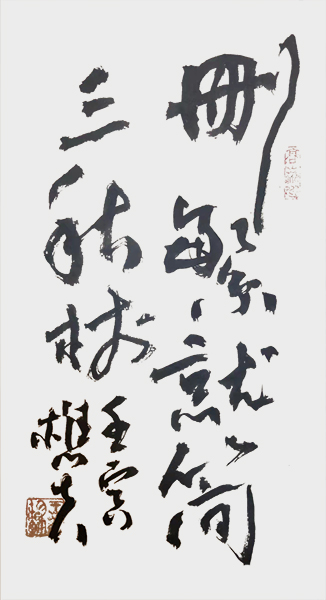 刪繁就简
三秋树
壬寅